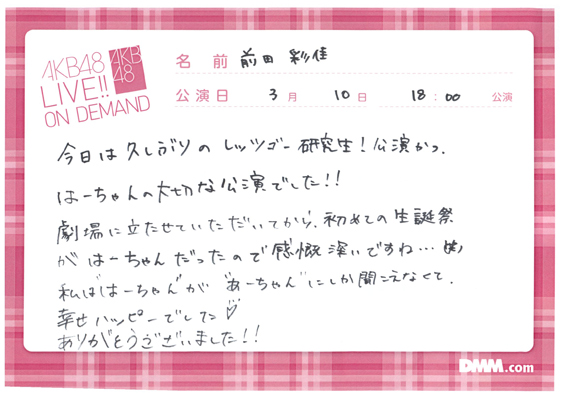 AKB48
LIVE!!
ON DEMAND
AKB
48
名前 前田 彩佳
公演日 3月 10日 18:00 公演
今日は久しぶりのレッツゴー研究生!公演かつ、
はーちゃんの大切な公演でした!!
劇場に立たせていただいてから、初めての生誕祭
がはーちゃんだったので感慨深いですね…(笑)
私は"はーちゃん"が"あーちゃん"にしか聞こえなくて、
幸せハッピーでした♡
ありがとうございました!!
DMM.com